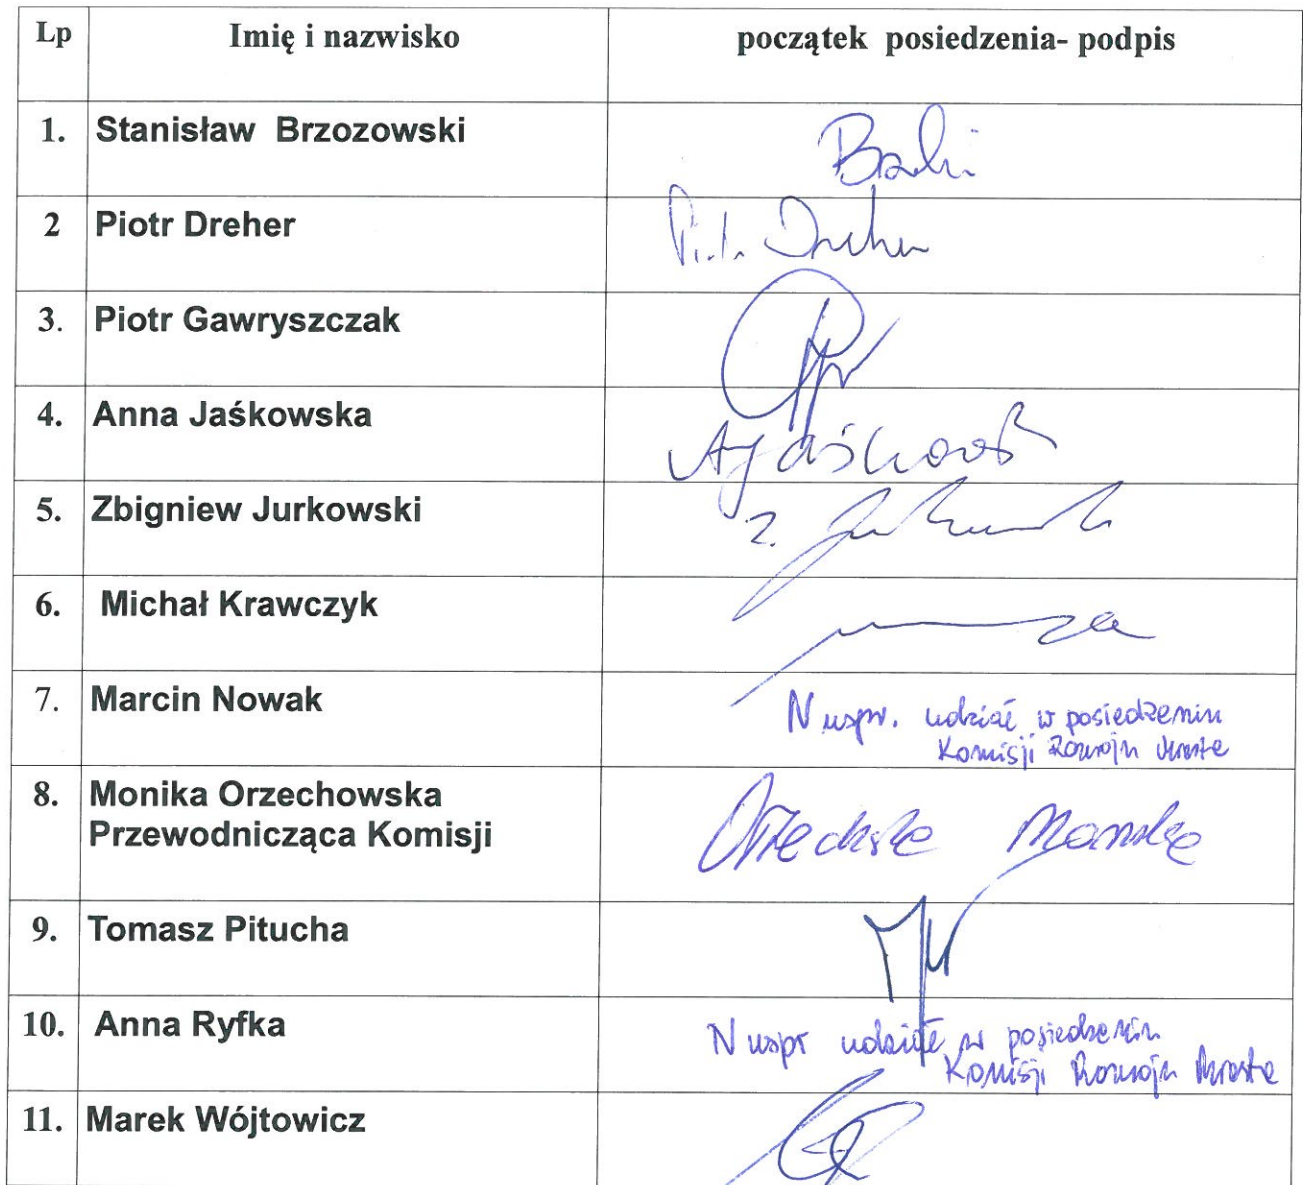 Lp Imię i nazwisko początek posiedzenia- podpis
1. Stanisław Brzozowski
2 Piotr Dreher Piotr Dreher
3. Piotr Gawryszczak
4. Anna Jaśkowska
5. Zbigniew Jurkowski
6. Michał Krawczyk
7. Marcin Nowak N uspr. udział w posiedzeniu
Komisji Rozwoju Miasta
8. Monika Orzechowska
Przewodnicząca Komisji
9. Tomasz Pitucha
10. Anna Ryfka N uspr udział w posiedzeniu
Komisji Rozwoju Miasta
11. Marek Wójtowicz